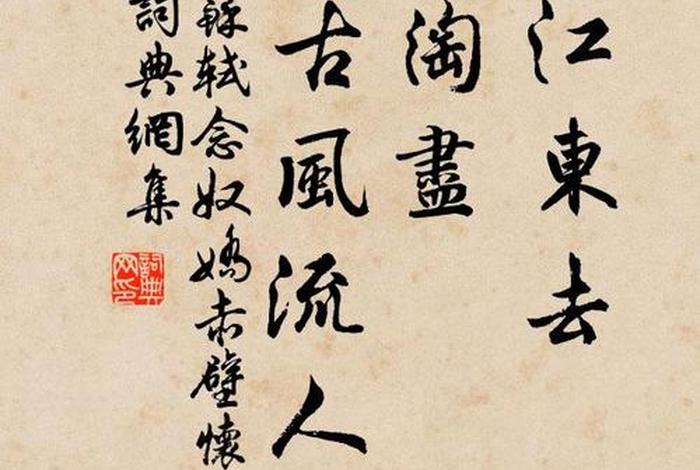 江東去
淘盡
古風流人
蘇軾念奴嬌赤壁懷
詞典網集
詞典網印